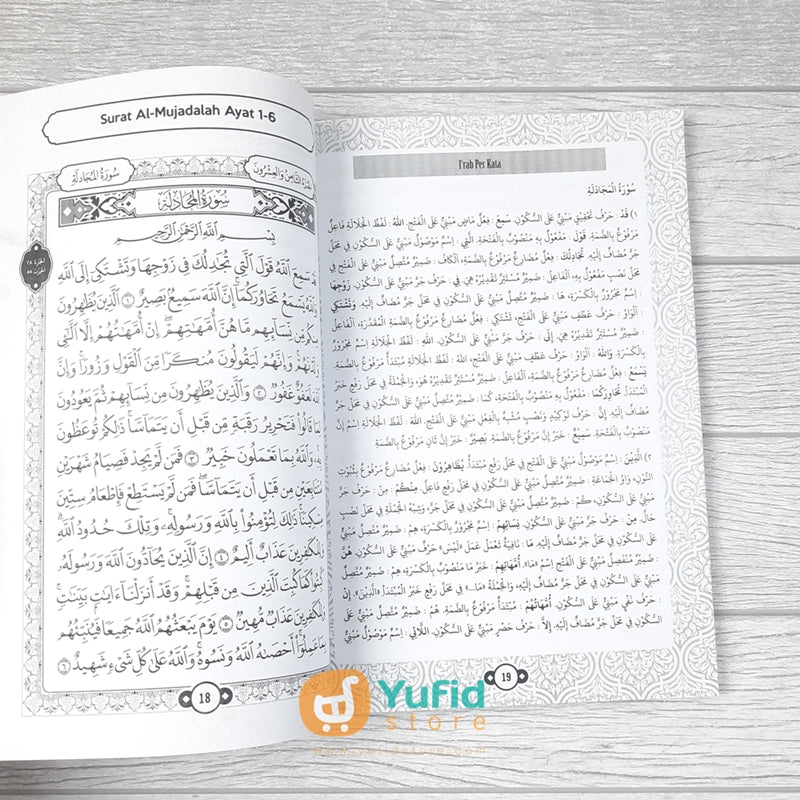 Surat Al-Mujadalah Ayat 1-6
سُورَةُ المُجَادَلَةِ
الجُزْءُ الثَّامِنُ وَالعِشْرُونَ
سُورَةُ المُجَادَلَةِ
الجزء ٢٨
الحزب ٥٥
بِسْمِ اللَّهِ الرَّحْمَٰنِ الرَّحِيمِ
قَدْ سَمِعَ اللَّهُ قَوْلَ الَّتِي تُجَادِلُكَ فِي زَوْجِهَا وَتَشْتَكِي إِلَى اللَّهِ
وَاللَّهُ يَسْمَعُ تَحَاوُرَكُمَا إِنَّ اللَّهَ سَمِيعٌ بَصِيرٌ ١ الَّذِينَ يُظَاهِرُونَ
مِنكُم مِّن نِّسَائِهِم مَّا هُنَّ أُمَّهَاتِهِمْ إِنْ أُمَّهَاتُهُمْ إِلَّا اللَّائِي
وَلَدْنَهُمْ وَإِنَّهُمْ لَيَقُولُونَ مُنكَرًا مِّنَ الْقَوْلِ وَزُورًا وَإِنَّ
اللَّهَ لَعَفُوٌّ غَفُورٌ ٢ وَالَّذِينَ يُظَاهِرُونَ مِن نِّسَائِهِمْ ثُمَّ يَعُودُونَ
لِمَا قَالُوا فَتَحْرِيرُ رَقَبَةٍ مِّن قَبْلِ أَن يَتَمَاسَّا ذَٰلِكُمْ تُوعَظُونَ
بِهِ وَاللَّهُ بِمَا تَعْمَلُونَ خَبِيرٌ ٣ فَمَن لَّمْ يَجِدْ فَصِيَامُ شَهْرَيْنِ
مُتَتَابِعَيْنِ مِن قَبْلِ أَن يَتَمَاسَّا فَمَن لَّمْ يَسْتَطِعْ فَإِطْعَامُ سِتِّينَ
مِسْكِينًا ذَٰلِكَ لِتُؤْمِنُوا بِاللَّهِ وَرَسُولِهِ وَتِلْكَ حُدُودُ اللَّهِ
وَلِلْكَافِرِينَ عَذَابٌ أَلِيمٌ ٤ إِنَّ الَّذِينَ يُحَادُّونَ اللَّهَ وَرَسُولَهُ
كُبِتُوا كَمَا كُبِتَ الَّذِينَ مِن قَبْلِهِمْ وَقَدْ أَنزَلْنَا آيَاتٍ بَيِّنَاتٍ
وَلِلْكَافِرِينَ عَذَابٌ مُّهِينٌ ٥ يَوْمَ يَبْعَثُهُمُ اللَّهُ جَمِيعًا فَيُنَبِّئُهُم
بِمَا عَمِلُوا أَحْصَاهُ اللَّهُ وَنَسُوهُ وَاللَّهُ عَلَىٰ كُلِّ شَيْءٍ شَهِيدٌ ٦
18
I'rab Per Kata
سُوْرَةُ الْمُجَادَلَةِ
١) قَدْ : حَرْفُ تَحْقِيْقٍ مَبْنِيٌّ عَلَى السُّكُوْنِ. سَمِعَ : فِعْلٌ مَاضٍ مَبْنِيٌّ عَلَى الْفَتْحِ. اللهُ : لَفْظُ الْجَلَالَةِ فَاعِلٌ
مَرْفُوْعٌ بِالضَّمَّةِ. قَوْلَ : مَفْعُوْلٌ بِهِ مَنْصُوْبٌ بِالْفَتْحَةِ. الَّتِي : اِسْمٌ مَوْصُوْلٌ مَبْنِيٌّ عَلَى السُّكُوْنِ فِي مَحَلِّ
جَرٍّ مُضَافٌ إِلَيْهِ. تُجَادِلُكَ : فِعْلٌ مُضَارِعٌ مَرْفُوْعٌ بِالضَّمَّةِ، الْكَافُ : ضَمِيْرٌ مُتَّصِلٌ مَبْنِيٌّ عَلَى الْفَتْحِ فِي
مَحَلِّ نَصْبٍ مَفْعُوْلٌ بِهِ، الْفَاعِلُ : ضَمِيْرٌ مُسْتَتِرٌ تَقْدِيْرُهُ هِيَ. فِي : حَرْفُ جَرٍّ مَبْنِيٌّ عَلَى السُّكُوْنِ. زَوْجِهَا
: اِسْمٌ مَجْرُوْرٌ بِالْكَسْرَةِ، هَا : ضَمِيْرٌ مُتَّصِلٌ مَبْنِيٌّ عَلَى السُّكُوْنِ فِي مَحَلِّ جَرٍّ مُضَافٌ إِلَيْهِ. وَتَشْتَكِي
: اَلْوَاوُ : حَرْفُ عَطْفٍ مَبْنِيٌّ عَلَى الْفَتْحِ، تَشْتَكِي : فِعْلٌ مُضَارِعٌ مَرْفُوْعٌ بِالضَّمَّةِ الْمُقَدَّرَةِ، الْفَاعِلُ
: ضَمِيْرٌ مُسْتَتِرٌ تَقْدِيْرُهُ هِيَ. إِلَى : حَرْفُ جَرٍّ مَبْنِيٌّ عَلَى السُّكُوْنِ. اللهِ : لَفْظُ الْجَلَالَةِ اِسْمٌ مَجْرُوْرٌ
بِالْكَسْرَةِ. وَاللهُ : اَلْوَاوُ : حَرْفُ عَطْفٍ مَبْنِيٌّ عَلَى الْفَتْحِ، اللهُ : لَفْظُ الْجَلَالَةِ مُبْتَدَأٌ مَرْفُوْعٌ بِالضَّمَّةِ.
يَسْمَعُ : فِعْلٌ مُضَارِعٌ مَرْفُوْعٌ بِالضَّمَّةِ، الْفَاعِلُ : ضَمِيْرٌ مُسْتَتِرٌ تَقْدِيْرُهُ هُوَ، وَالْجُمْلَةُ فِي مَحَلِّ رَفْعٍ خَبَرُ
الْمُبْتَدَإِ. تَحَاوُرَكُمَا : مَفْعُوْلٌ بِهِ مَنْصُوْبٌ بِالْفَتْحَةِ، كُمَا : ضَمِيْرٌ مُتَّصِلٌ مَبْنِيٌّ عَلَى السُّكُوْنِ فِي مَحَلِّ جَرٍّ
مُضَافٌ إِلَيْهِ. إِنَّ : حَرْفُ تَوْكِيْدٍ وَنَصْبٍ مُشَبَّهٌ بِالْفِعْلِ مَبْنِيٌّ عَلَى الْفَتْحِ. اللهَ : لَفْظُ الْجَلَالَةِ اِسْمُ إِنَّ
مَنْصُوْبٌ بِالْفَتْحَةِ. سَمِيْعٌ : خَبَرُ إِنَّ مَرْفُوْعٌ بِالضَّمَّةِ. بَصِيْرٌ : خَبَرُ إِنَّ ثَانٍ مَرْفُوْعٌ بِالضَّمَّةِ.
٢) الَّذِيْنَ : اِسْمٌ مَوْصُوْلٌ مَبْنِيٌّ عَلَى الْفَتْحِ فِي مَحَلِّ رَفْعٍ مُبْتَدَأٌ. يُظَاهِرُوْنَ : فِعْلٌ مُضَارِعٌ مَرْفُوْعٌ بِثُبُوْتِ
النُّوْنِ، وَاوُ الْجَمَاعَةِ : ضَمِيْرٌ مُتَّصِلٌ مَبْنِيٌّ عَلَى السُّكُوْنِ فِي مَحَلِّ رَفْعٍ فَاعِلٌ. مِنْكُمْ : مِنْ : حَرْفُ جَرٍّ
مَبْنِيٌّ عَلَى السُّكُوْنِ، كُمْ : ضَمِيْرٌ مُتَّصِلٌ مَبْنِيٌّ عَلَى السُّكُوْنِ فِي مَحَلِّ جَرٍّ، وَشِبْهُ الْجُمْلَةِ فِي مَحَلِّ نَصْبٍ
حَالٌ. مِنْ : حَرْفُ جَرٍّ مَبْنِيٌّ عَلَى السُّكُوْنِ. نِسَائِهِمْ : اِسْمٌ مَجْرُوْرٌ بِالْكَسْرَةِ، هِمْ : ضَمِيْرٌ مُتَّصِلٌ
مَبْنِيٌّ عَلَى السُّكُوْنِ فِي مَحَلِّ جَرٍّ مُضَافٌ إِلَيْهِ. مَا : نَافِيَةٌ تَعْمَلُ عَمَلَ «لَيْسَ» حَرْفٌ مَبْنِيٌّ عَلَى السُّكُوْنِ. هُنَّ
: ضَمِيْرٌ مُنْفَصِلٌ مَبْنِيٌّ عَلَى الْفَتْحِ اِسْمُ «مَا». أُمَّهَاتِهِمْ : خَبَرُ مَا مَنْصُوْبٌ بِالْكَسْرَةِ، هِمْ : ضَمِيْرٌ مُتَّصِلٌ
مَبْنِيٌّ عَلَى السُّكُوْنِ فِي مَحَلِّ جَرٍّ مُضَافٌ إِلَيْهِ، وَالْجُمْلَةُ «مَا...» فِي مَحَلِّ رَفْعٍ خَبَرُ «الَّذِيْنَ». إِنْ
: حَرْفُ نَفْيٍ مَبْنِيٌّ عَلَى السُّكُوْنِ. أُمَّهَاتُهُمْ : مُبْتَدَأٌ مَرْفُوْعٌ بِالضَّمَّةِ، هُمْ : ضَمِيْرٌ مُتَّصِلٌ مَبْنِيٌّ عَلَى
السُّكُوْنِ فِي مَحَلِّ جَرٍّ مُضَافٌ إِلَيْهِ. إِلَّا : حَرْفُ حَصْرٍ مَبْنِيٌّ عَلَى السُّكُوْنِ. اللَّائِي : اِسْمٌ مَوْصُوْلٌ مَبْنِيٌّ
19
Yufid
store
www.yufidstore.com